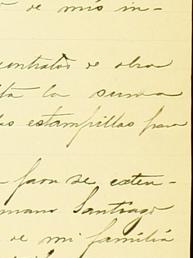 de mis in-
contratos de obra
la suma
estampillas para
para se exten-
mano Santiago
de mi familia